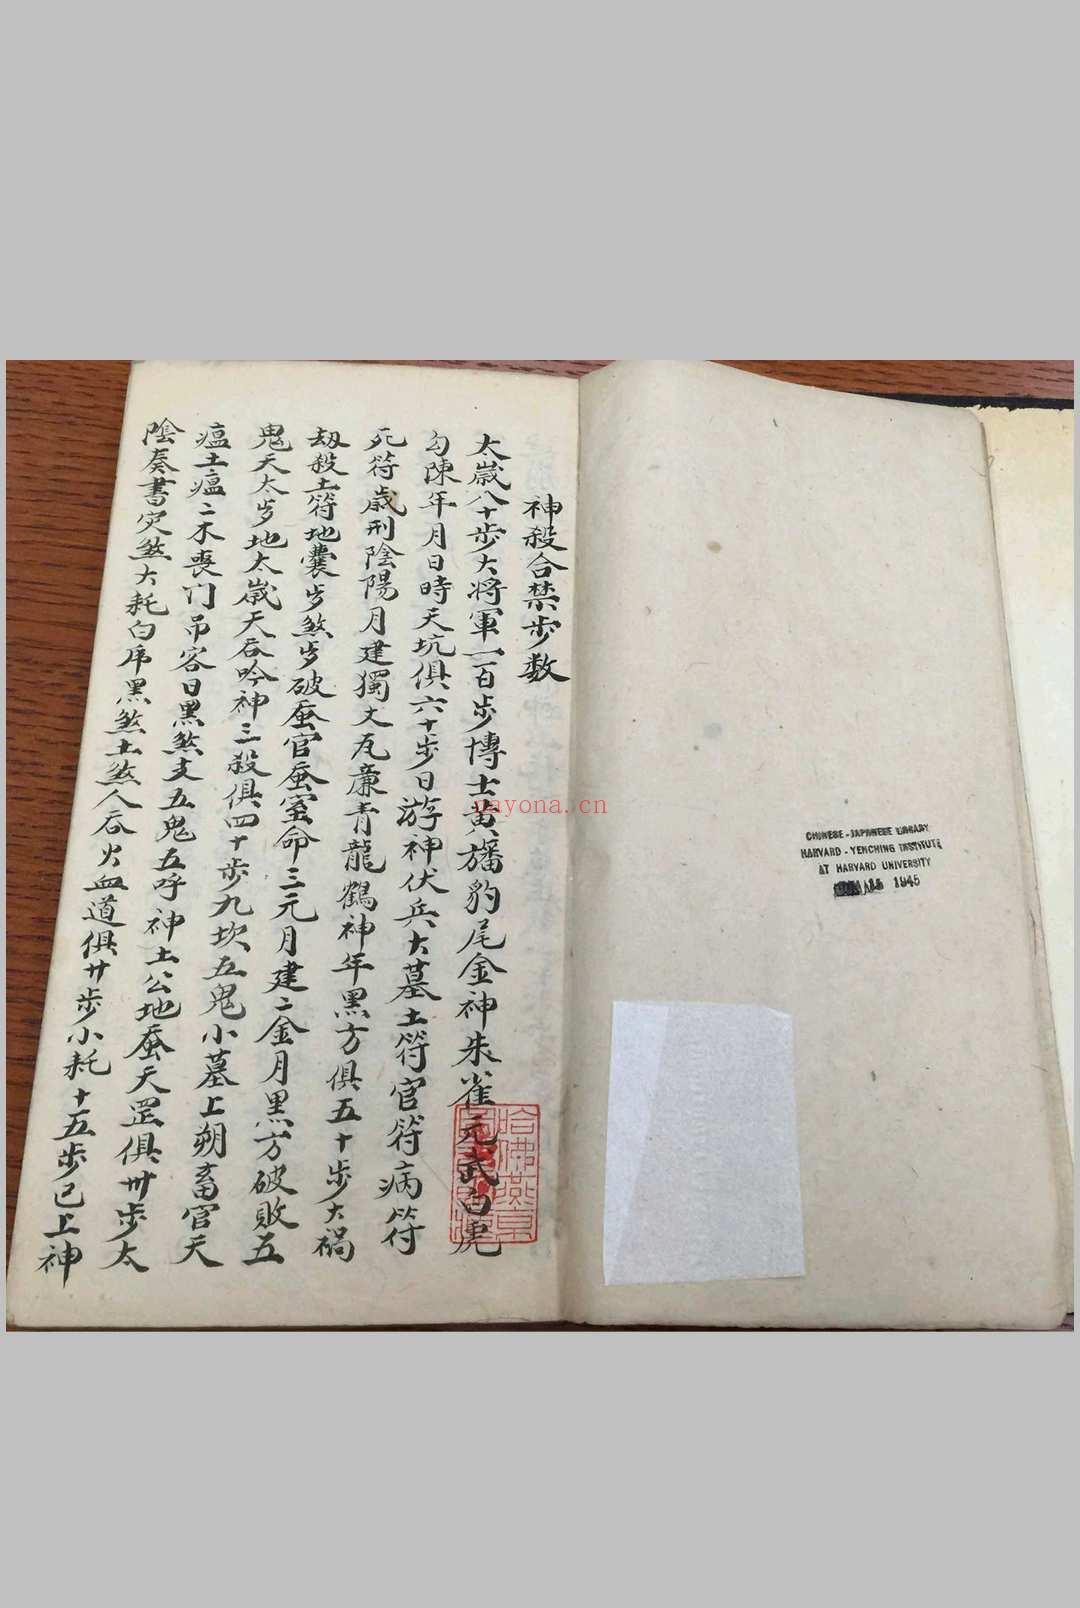 神殺合禁步数
太歲八十步大将軍一百步博士黄旛豹尾金神朱雀元武白虎
勾陳年月日時天坑俱六十步日游神伏兵大墓土符官符病符
死符歲刑陰陽月建獨丈瓦廉青龍鶴神年黑方俱五十步大禍
劫殺土符地囊歩煞歩破蚕官蚕室命三元月建二金月黑方破敗五
鬼天太歩地太歲天吞吟神三殺俱四十步九坎五鬼小墓上朔畜官天
瘟土瘟二木喪门吊客日黑煞支五鬼五呼神土公地蚕天罡俱卅步太
陰奏書灾煞大耗白虎黑煞土煞人吞火血道俱廿步小耗十五步已上神
哈佛燕京
nayona.cn
CHINESE-JAPANESE LIBRARY
HARVARD-YENCHING INSTITUTE
AT HARVARD UNIVERSITY
1945